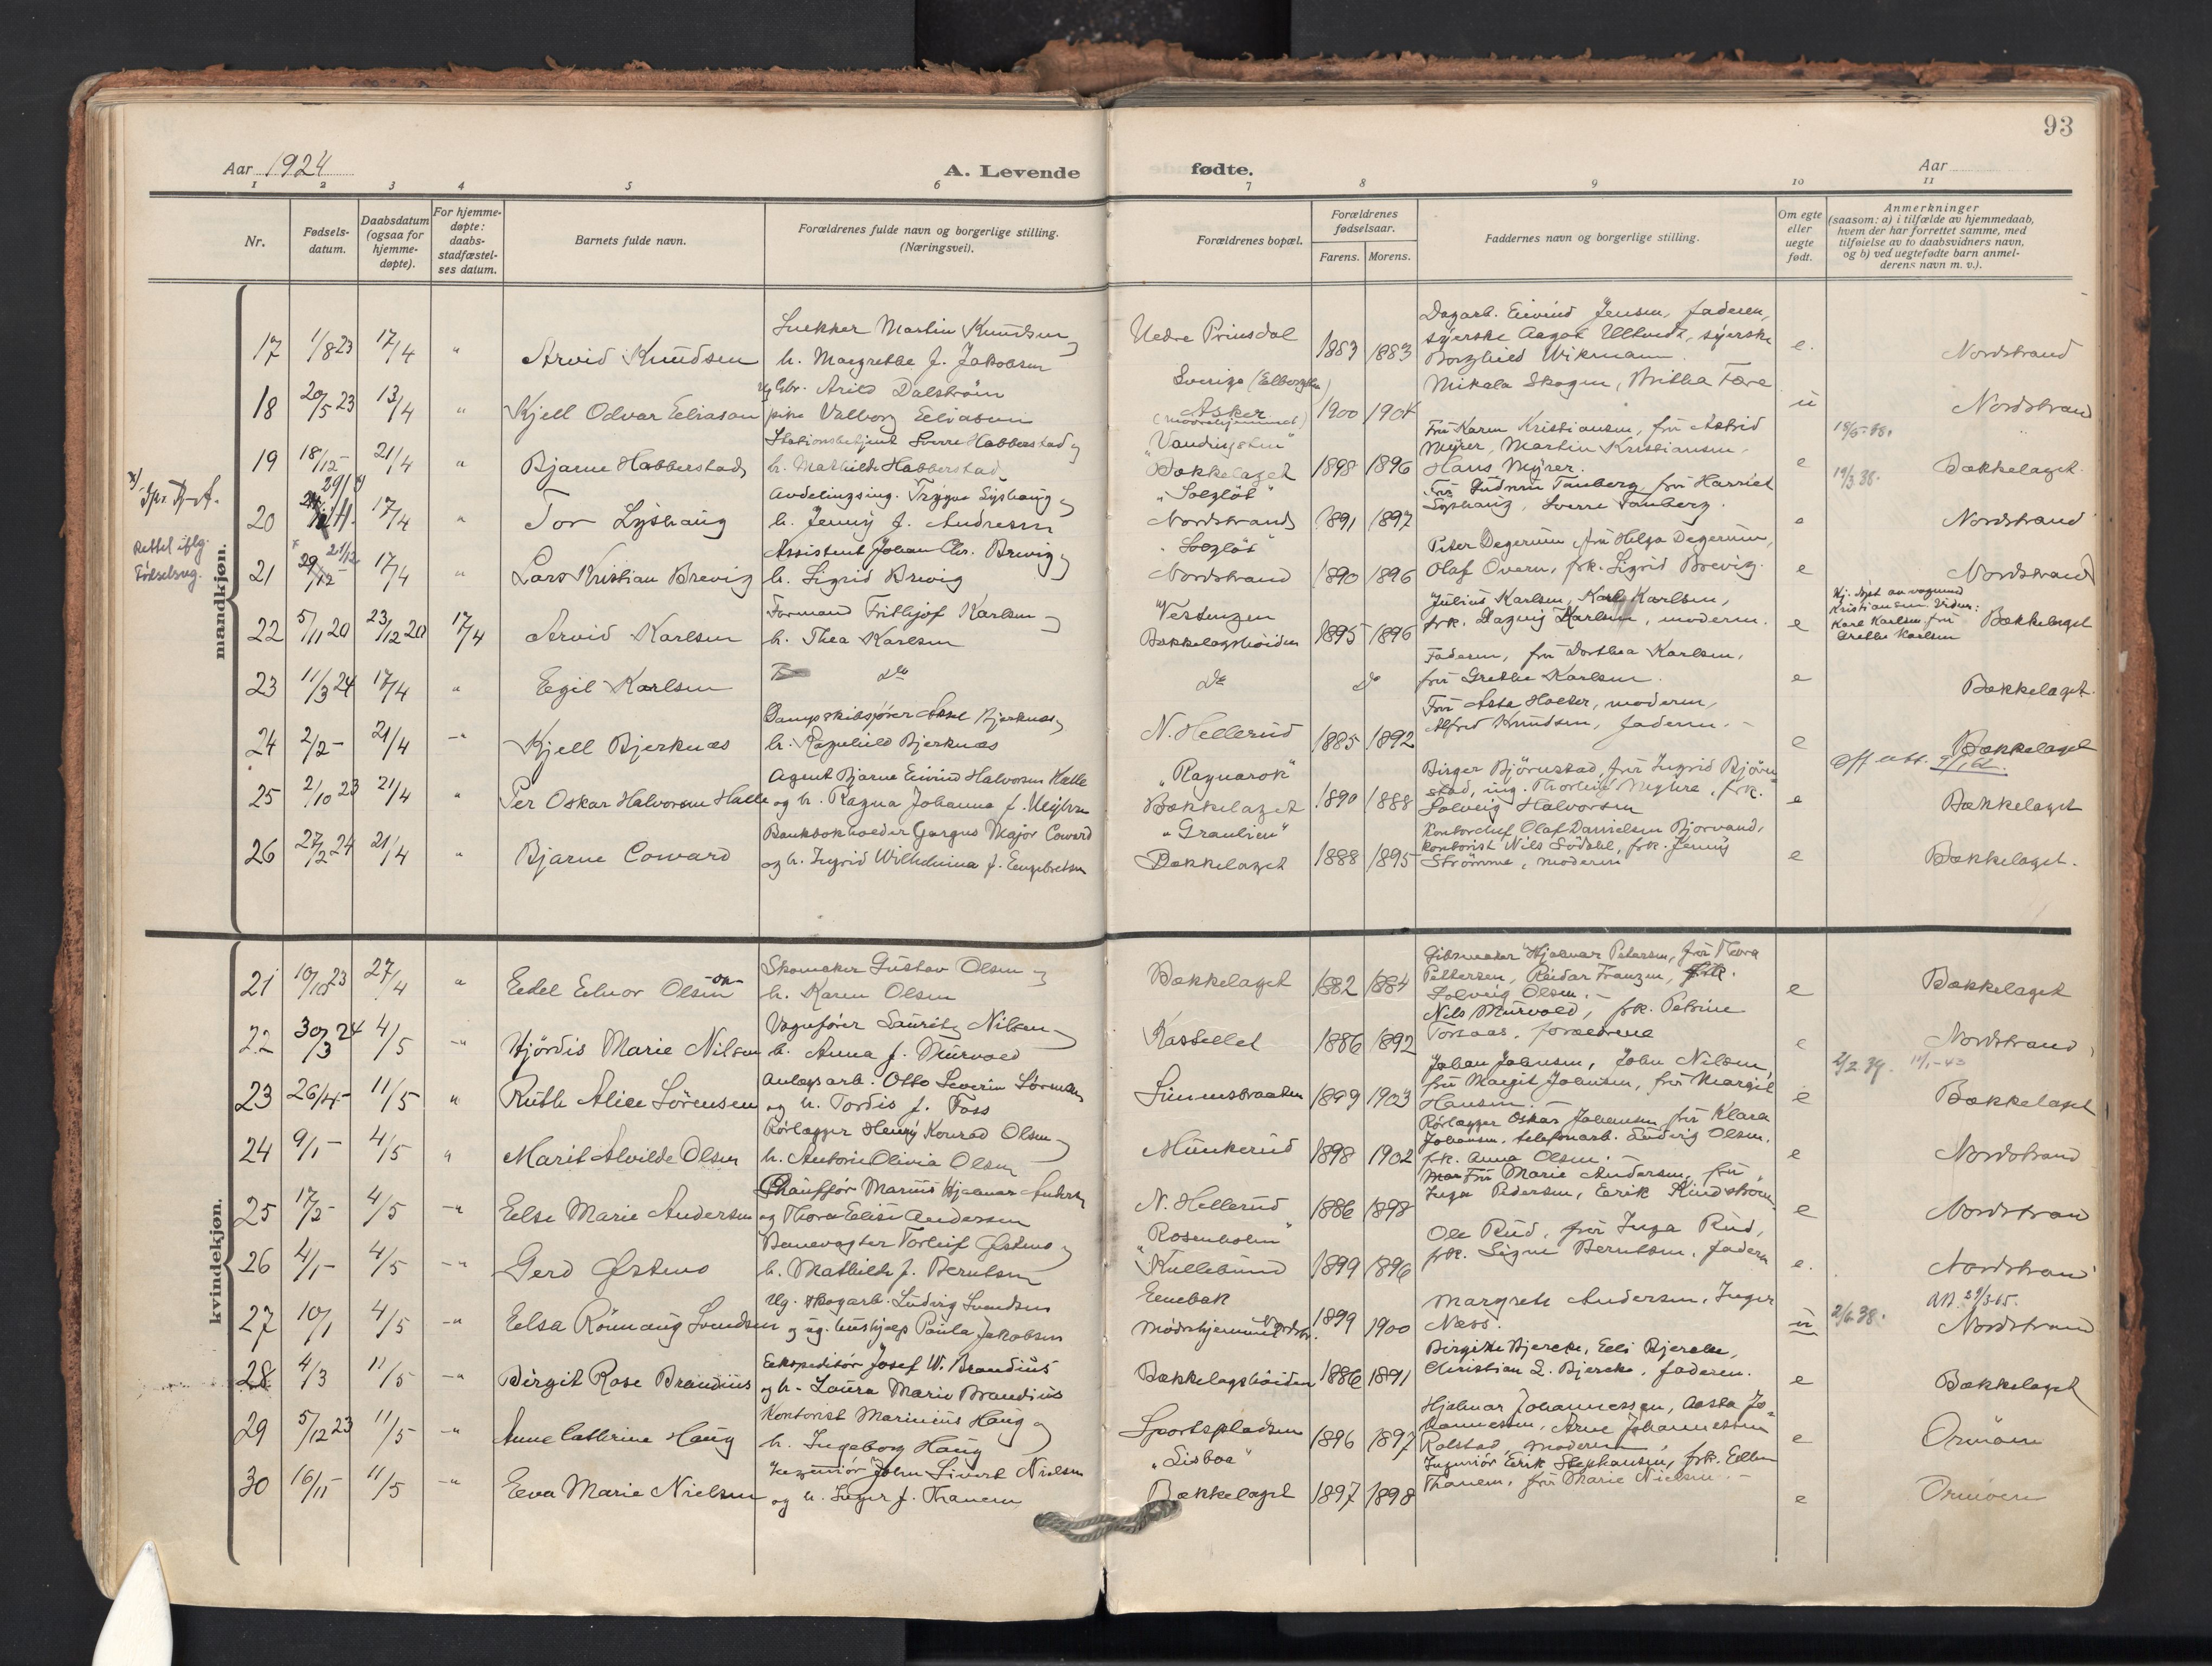 93
Aar 1924
A. Levende
fødte.
Aar
1 2 3 4 5 6 7 8 9 10 11
Nr.
Fødsels-
datum.
Daabsdatum
(ogsaa for
hjemme-
døpte).
For hjemme-
døpte:
daabs-
stadfæstel-
ses datum.
Barnets fulde navn.
Forældrenes fulde navn og borgerlige stilling.
(Næringsvei).
Forældrenes bopæl.
Forældrenes
fødselsaar.
Farens. Morens.
Faddernes navn og borgerlige stilling.
Om egte
eller
uegte
født.
Anmerkninger
(saasom: a) i tilfælde av hjemmedaab,
hvem der har forrettet samme, med
tilføielse av to daabsvidners navn,
og b) ved uegtefødte barn anmel-
derens navn m. v.).
mandkjøn.
17 1/8 23 17/4 " Arvid Knudsen
Snekker Martin Knudsen og
h. Margrethe f. Jakobsen
Nedre Prinsdal 1883 1883
Dagarb. Eivind Jensen, faderen,
syerske Aagot Ulltvedt, syerske
Borghild Wikmann
e. Nordstrand
18 20/5 23 13/4 " Kjell Odvar Eliasen
Arild Dalström
pike Valborg Eliasen
Sverige
Asker
(mødrehjemmet)
1900 1904
Mikala Skogen, Britha Fære
u Nordstrand
19 18/12 - 21/4 " Bjarne Habberstad
Stationsbetjent Sverre Habberstad og
h. Mathilde Habberstad
Bækkelaget 1898 1896
Fru Karen Kristiansen, fru Astrid
Myrer, Martin Kristiansen,
Hans Myrer.
e 19/3 38. Bækkelaget.
20 29/1 17/4 " Tor Lyshaug
Avdelingsing. Trygve Lyshaug og
h. Jenny f. Andresen
"Solgløt"
Nordstrand 1891 1897
Fru Gudrun Tanberg, fru Harriet
Lyshaug, Sverre Tanberg.
e Nordstrand
Rettet iflg.
Fødselsreg.
21 29/12 - 21/12 17/4 " Lars Kristian Brevig
Assistent Johan Chr. Brevig og
h. Sigrid Brevig
"Solgløt"
Nordstrand 1890 1896
Peter Degerum, fru Helga Degerum,
Olaf Overn, frk. Sigrid Brevig.
e Nordstrand
22 5/11 20 23/12 20 17/4 Arvid Karlsen
Formand Frithjof Karlsen og
h. Thea Karlsen
Bækkelagshøiden 1895 1896
Julius Karlsen, Karl Karlsen,
frk. Dagny Karlsen, moderen.
e
Kristiansen. Vidner:
Karl Karlsen, fru
Grethe Karlsen
Bækkelaget
23 11/3 24 17/4 " Egil Karlsen
do do do
Faderen, fru Dorthea Karlsen,
fru Grethe Karlsen.
e Bækkelaget.
24 2/2 - 21/4 -"- Kjell Bjerknæs
Dampskibsfører Aksel Bjerknæs og
h. Ragnhild Bjerknæs
N. Hellerud 1885 1892
Fru Asta Holter, moderen,
Alfred Knudsen, faderen. -
e Bækkelaget
25 2/10 23 21/4 " Per Oskar Halvorsen Halle
Agent Bjarne Eivind Halvorsen Halle
og h. Ragna Johanna f. Myhre
"Ragnarok"
Bækkelaget 1890 1888
Birger Bjørnstad, fru Ingrid Bjørn-
stad, ing. Thorleif Myhre, frk.
Solveig Halvorsen
e Bækkelaget
26 27/2 24 21/4 " Bjarne Coward
Bankbokholder Gorgus Major Coward
og h. Ingrid Wilhelmina f. Engebretsen
"Granlien"
Bækkelaget 1888 1895
Kontorchef Olaf Danielsen Bjorvand,
kontorist Nils Södahl, frk. Jenny
Strömme, moderen
e Bækkelaget.
kvindekjøn.
21 10/10 23 27/4 " Edel Elnor Olsen
Skomaker Gustav Olsen og
h. Karen Olsen
Bækkelaget 1882 1884
Gibsmaker Hjalmar Petersen, fru Thora
Pettersen, Reidar Franzen, frk.
Solveig Olsen. -
e Bækkelaget
22 30/3 24 4/5 -"- Hjördis Marie Nilsen
Vognfører Lauritz Nilsen og
h. Anna f. Murvold
Kastellet 1886 1892
Nils Murvold, frk. Petrine
Torsaas, forældrene
e Nordstrand
23 26/4 - 11/5 " Ruth Alice Sörensen
Anlægsarb. Otto Severin Sörensen
og h. Tordis f. Foss
Simensbraaten 1899 1903
Johan Johnsen, John Nilsen,
fru Margit Johnsen, fru Margit
Hansen. -
e 2/2 39. Bækkelaget
24 9/1 - 4/5 " Marit Alvilde Olsen
Rørlægger Henry Konrad Olsen og
h. Antonie Olivia Olsen
Munkerud 1898 1902
Rørlægger Oskar Johansen, fru Klara
Johansen, telefonarb. Ludvig Olsen,
frk. Anna Olsen. -
e Nordstrand
25 17/2 - 4/5 -"- Else Marie Andersen
Chauffør Marius Hjalmar Andersen
og Thora Elise Andersen
N. Hellerud 1886 1898
Fru Marie Andersen, fru
Inga Pedersen, Erik Lindström
e Nordstrand
26 4/1 - 4/5 -"- Gerd Østmo
Banevagter Torleif Østmo og
h. Mathilde f. Berntsen
"Rosenholm"
Kullebund 1899 1896
Ole Rud, fru Inga Rud,
frk. Signe Berntsen, faderen
e. Nordstrand
27 10/1 4/5 -"- Elsa Rönnaug Svendsen
Ug. skogarb. Ludvig Svendsen
og ug. hushjelp Paula Jakobsen
Enebak
Mødrehjemmet Nordstr. 1899 1900
Margrete Andersen, Inger
Næss.
u 2/6 38. Nordstrand
28 4/3 11/5 -"- Birgit Rose Brandius
Ekspeditör Josef W. Brandius
og h. Laura Marie Brandius
Bækkelagshøiden 1886 1891
Birgitte Bjercke, Elli Bjercke,
Christian L. Bjercke, faderen.
e Bækkelaget
29 5/12 23 11/5 -"- Anne Cathrine Haug
Kontorist Marinius Haug og
h. Ingeborg Haug
Sportspladsen 1896 1897
Hjalmar Johannessen, Aasta Jo-
hannessen, Arne Johannessen
Rolstad, moderen
e Ormöen
30 16/11 - 11/5 -"- Eva Marie Nielsen
Ingeniör John Sivert Nielsen
og h. Inger f. Thanem
"Lisboa"
Bækkelaget 1897 1898
Ingeniör Erik Stephansen, frk. Ellen
Thanem, fru Marie Nielsen. -
e Ormöen